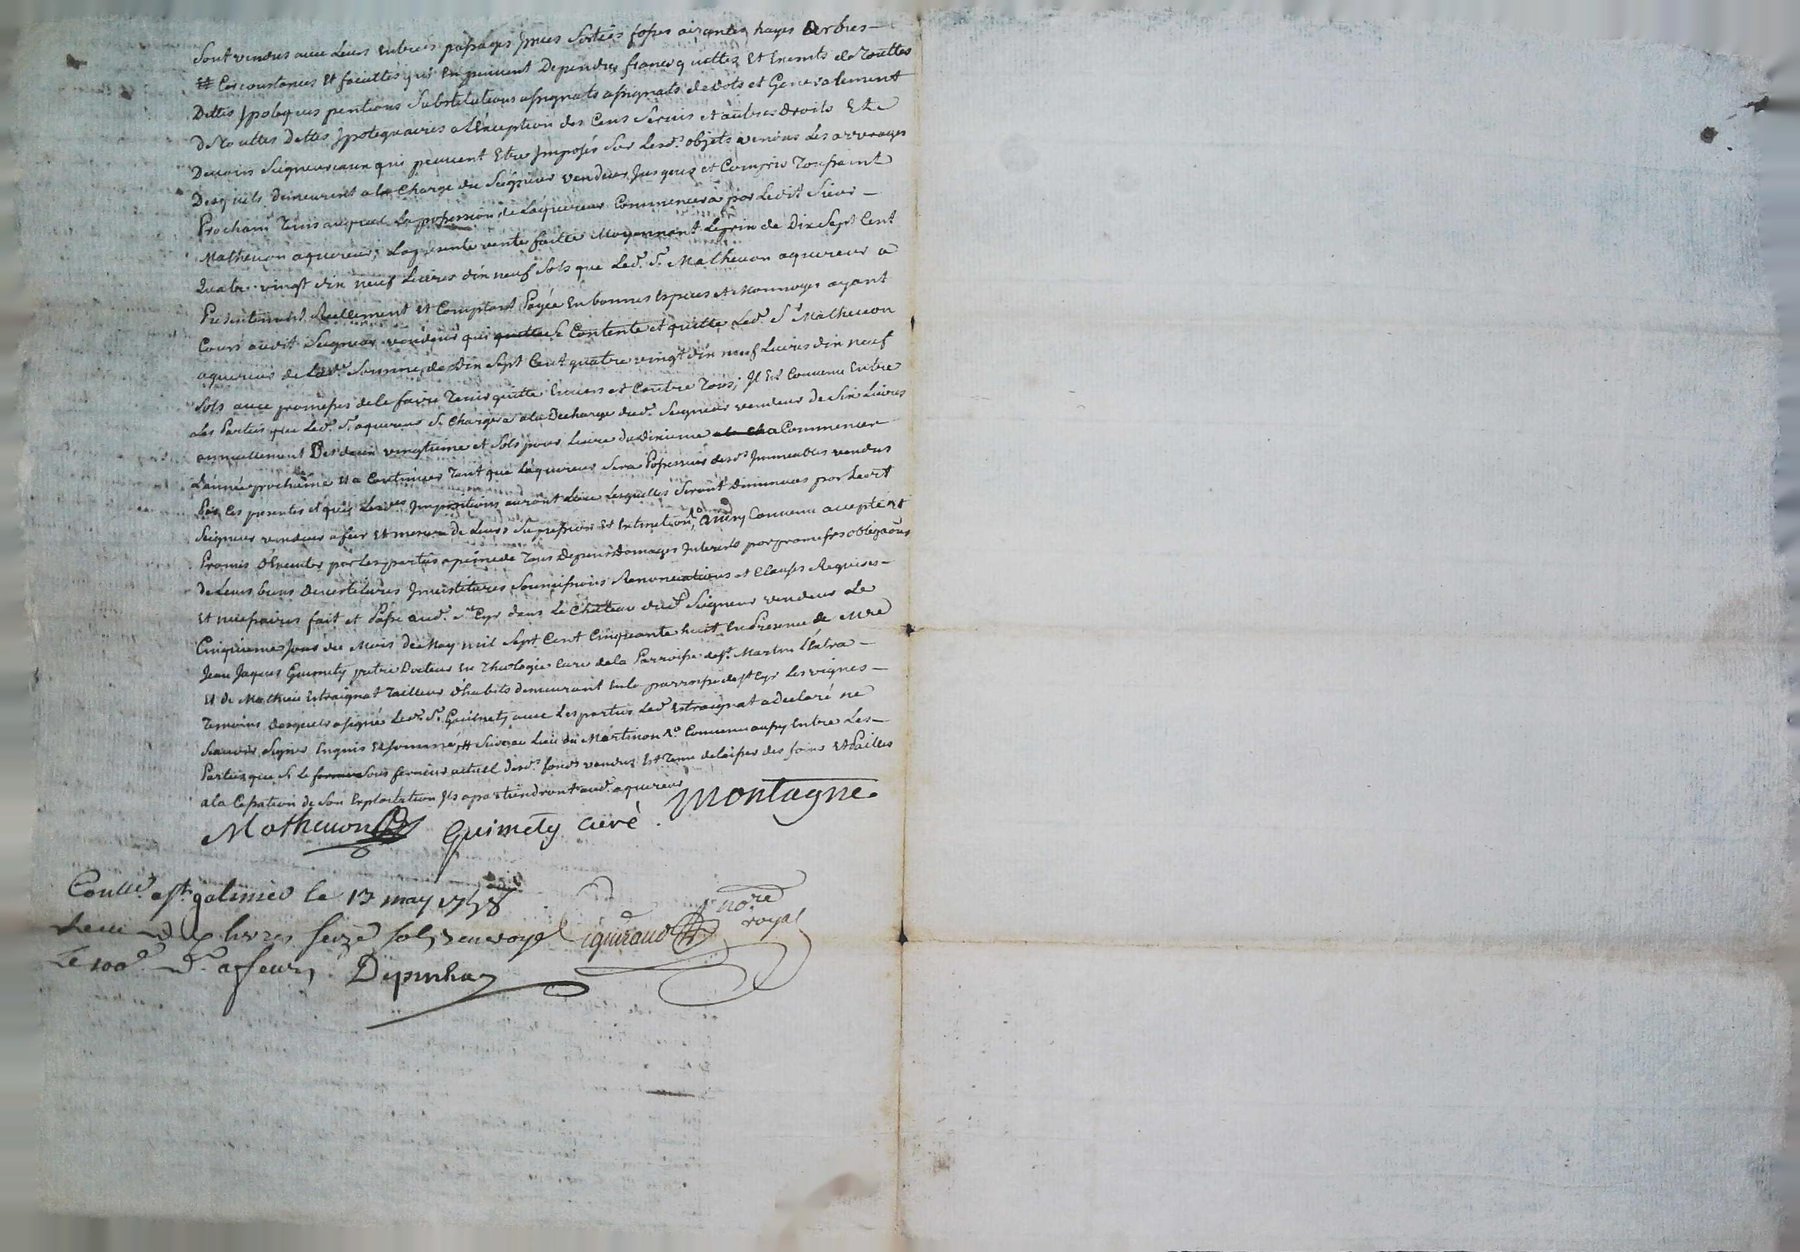 Sont vendus avec Leurs Entrées passages prises Sorties fosses aizances hayes Arbres
Et Circonstances Et facultés qui En peuvent Dependre francs quittes Et Exempts de Touttes
Dettes ypoteques pentions Substitutions assignats de dots et Generalement
De Touttes dettes ypotequaires a L'Exeption des Cens Servis et autres Droits Et
Devoirs Seigneuriaux qui peuvent Etre Imposés Sur Lesd.s objets vendus Les arrerages
Desquels demeurent a la Charge du Seigneur vendeur Jusques et Compris Toussaint
Prochain Tems auquel La possession de Laquereur Commencera par Ledit Sieur
Matheuon aquereur; La presente vente faitte Moyennant Le prix de Dix Sept Cent
Quatre vingt dix neuf Livres dix neuf Sols que Led. Sr. Matheuon aquereur a
Presentement Reellement Et Comptant Payée En bonnes Especes et Monnoyes ayant
Cours audit Seigneur vendeur qui Contente et quitte Led. Sr. Matheuon
aquereur de Lad.e Somme de Dix Sept Cent quatre vingt dix neuf Livres dix neuf
Sols avec promesses de le faire Tenir quitte Envers et Contre Tous; Il Est Convenu Entre
Les Parties que Led. Sr. aquereur Se Chargera a la Decharge dud. Seigneur vendeur de Six Livres
annuellement Des deux vingtieme et Sols pour Livre du Dixieme a Commencer
L'année prochaine Et a Continuer Tant que L'aquereur Sera Possesseur desd.s Immeubles vendus
Par Ces presentes et que Lesd.es Impositions auront Lieu Lesquelles Seront Diminuées par Ledit
Seigneur vendeur a fur Et mesure de Leurs Supression Et Extinction, Ainsy Convenu accepté Et
Promis D'Executer par Les parties a peine de Tous Depens Domages Interests par promesses obligaōns
de Leurs biens Devestitures Investitures Soumissions Renonciations et Clauses Requises
Et necessaires fait et Passé aud. St. Cyr dans Le Château dud. Seigneur vendeur Le
Cinquieme Jour du Mois de May mil Sept Cent Cinquante huit En Presence de Mre
Jean Jaques Guimety pretre Docteur En Theologie Curé de la Parroisse de St. Martin L'Estra
Et de Mathieu Estraignat Tailleur d'habits demeurant En la parroisse de St Cyr Les vignes
Temoins desquels a signé Led. Sr. Guimety avec Les parties Led. Estraignat a declaré ne
Scavoir Signer Enquis Et Sommé, Convenu aussy Entre Les
Parties que Si Le Sous fermier actuel desd.s fonds vendus Est Tenu de laisser des foins Et Pailles
a la Cessation de Son Exploitation Ils apartiendront aud. aquereur
Montagne
Matheuon Guimety curé
Conllé. a St. galmier le 13 may 1758
Receu Dix livres seize sols
Le 100e. Dr. Depinhac
nore
royal